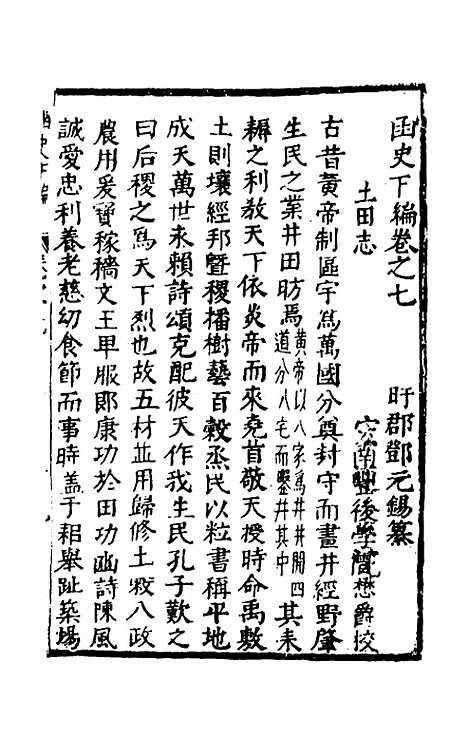 函史下編卷之七
盱郡鄧元錫纂
南豐後學懋爵校
土田志
古昔黃帝制區宇爲萬國分奠封守而畫井經野肇
生民之業井田昉焉黃帝以八家爲井井開四道分八宅而鑿井其中其耒
耨之利教天下依炎帝而來堯首敬天授時命禹敷
土則壤經邦暨稷播樹藝百穀烝民以粒書稱平地
成天萬世永賴詩頌克配彼天作我生民孔子歎之
曰后稷之爲天下烈也故五材並用歸修土穀八政
農用爰寶稼穡文王卑服卽康功於田功豳詩陳風
誠愛忠利養老慈幼食節而事時蓋于耜舉趾築場
函史下編